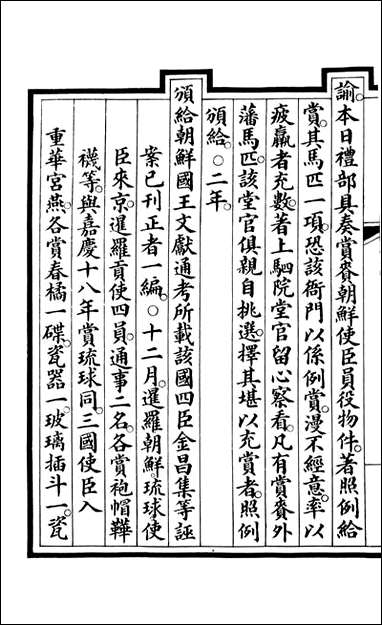 諭本日禮部具奏賞賚朝鮮使臣員役物件著照例給
賞其馬匹一項恐該衙門以係例賞漫不經意率以
疲羸者充數著上駟院堂官留心察看凡有賞賚外
藩馬匹該堂官俱親自挑選擇其堪以充賞者照例
頒給○二年
頒給朝鮮國王文獻通考所載該國四臣金昌集等誣
案已刊正者一編○十二月暹羅朝鮮琉球使
臣來京暹羅貢使四員通事二名各賞袍帽鞾
襪等與嘉慶十八年賞琉球同三國使臣入
重華宮燕各賞春橘一碟瓷器一玻璃插斗一瓷